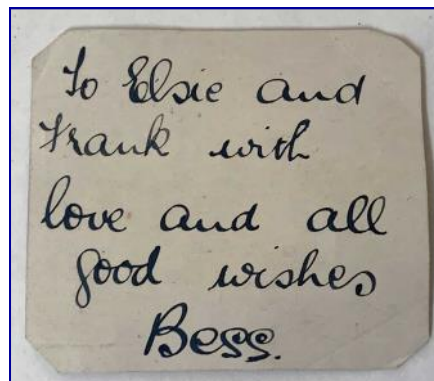 To Elsie and
Frank with
love and all
good wishes
Bess.